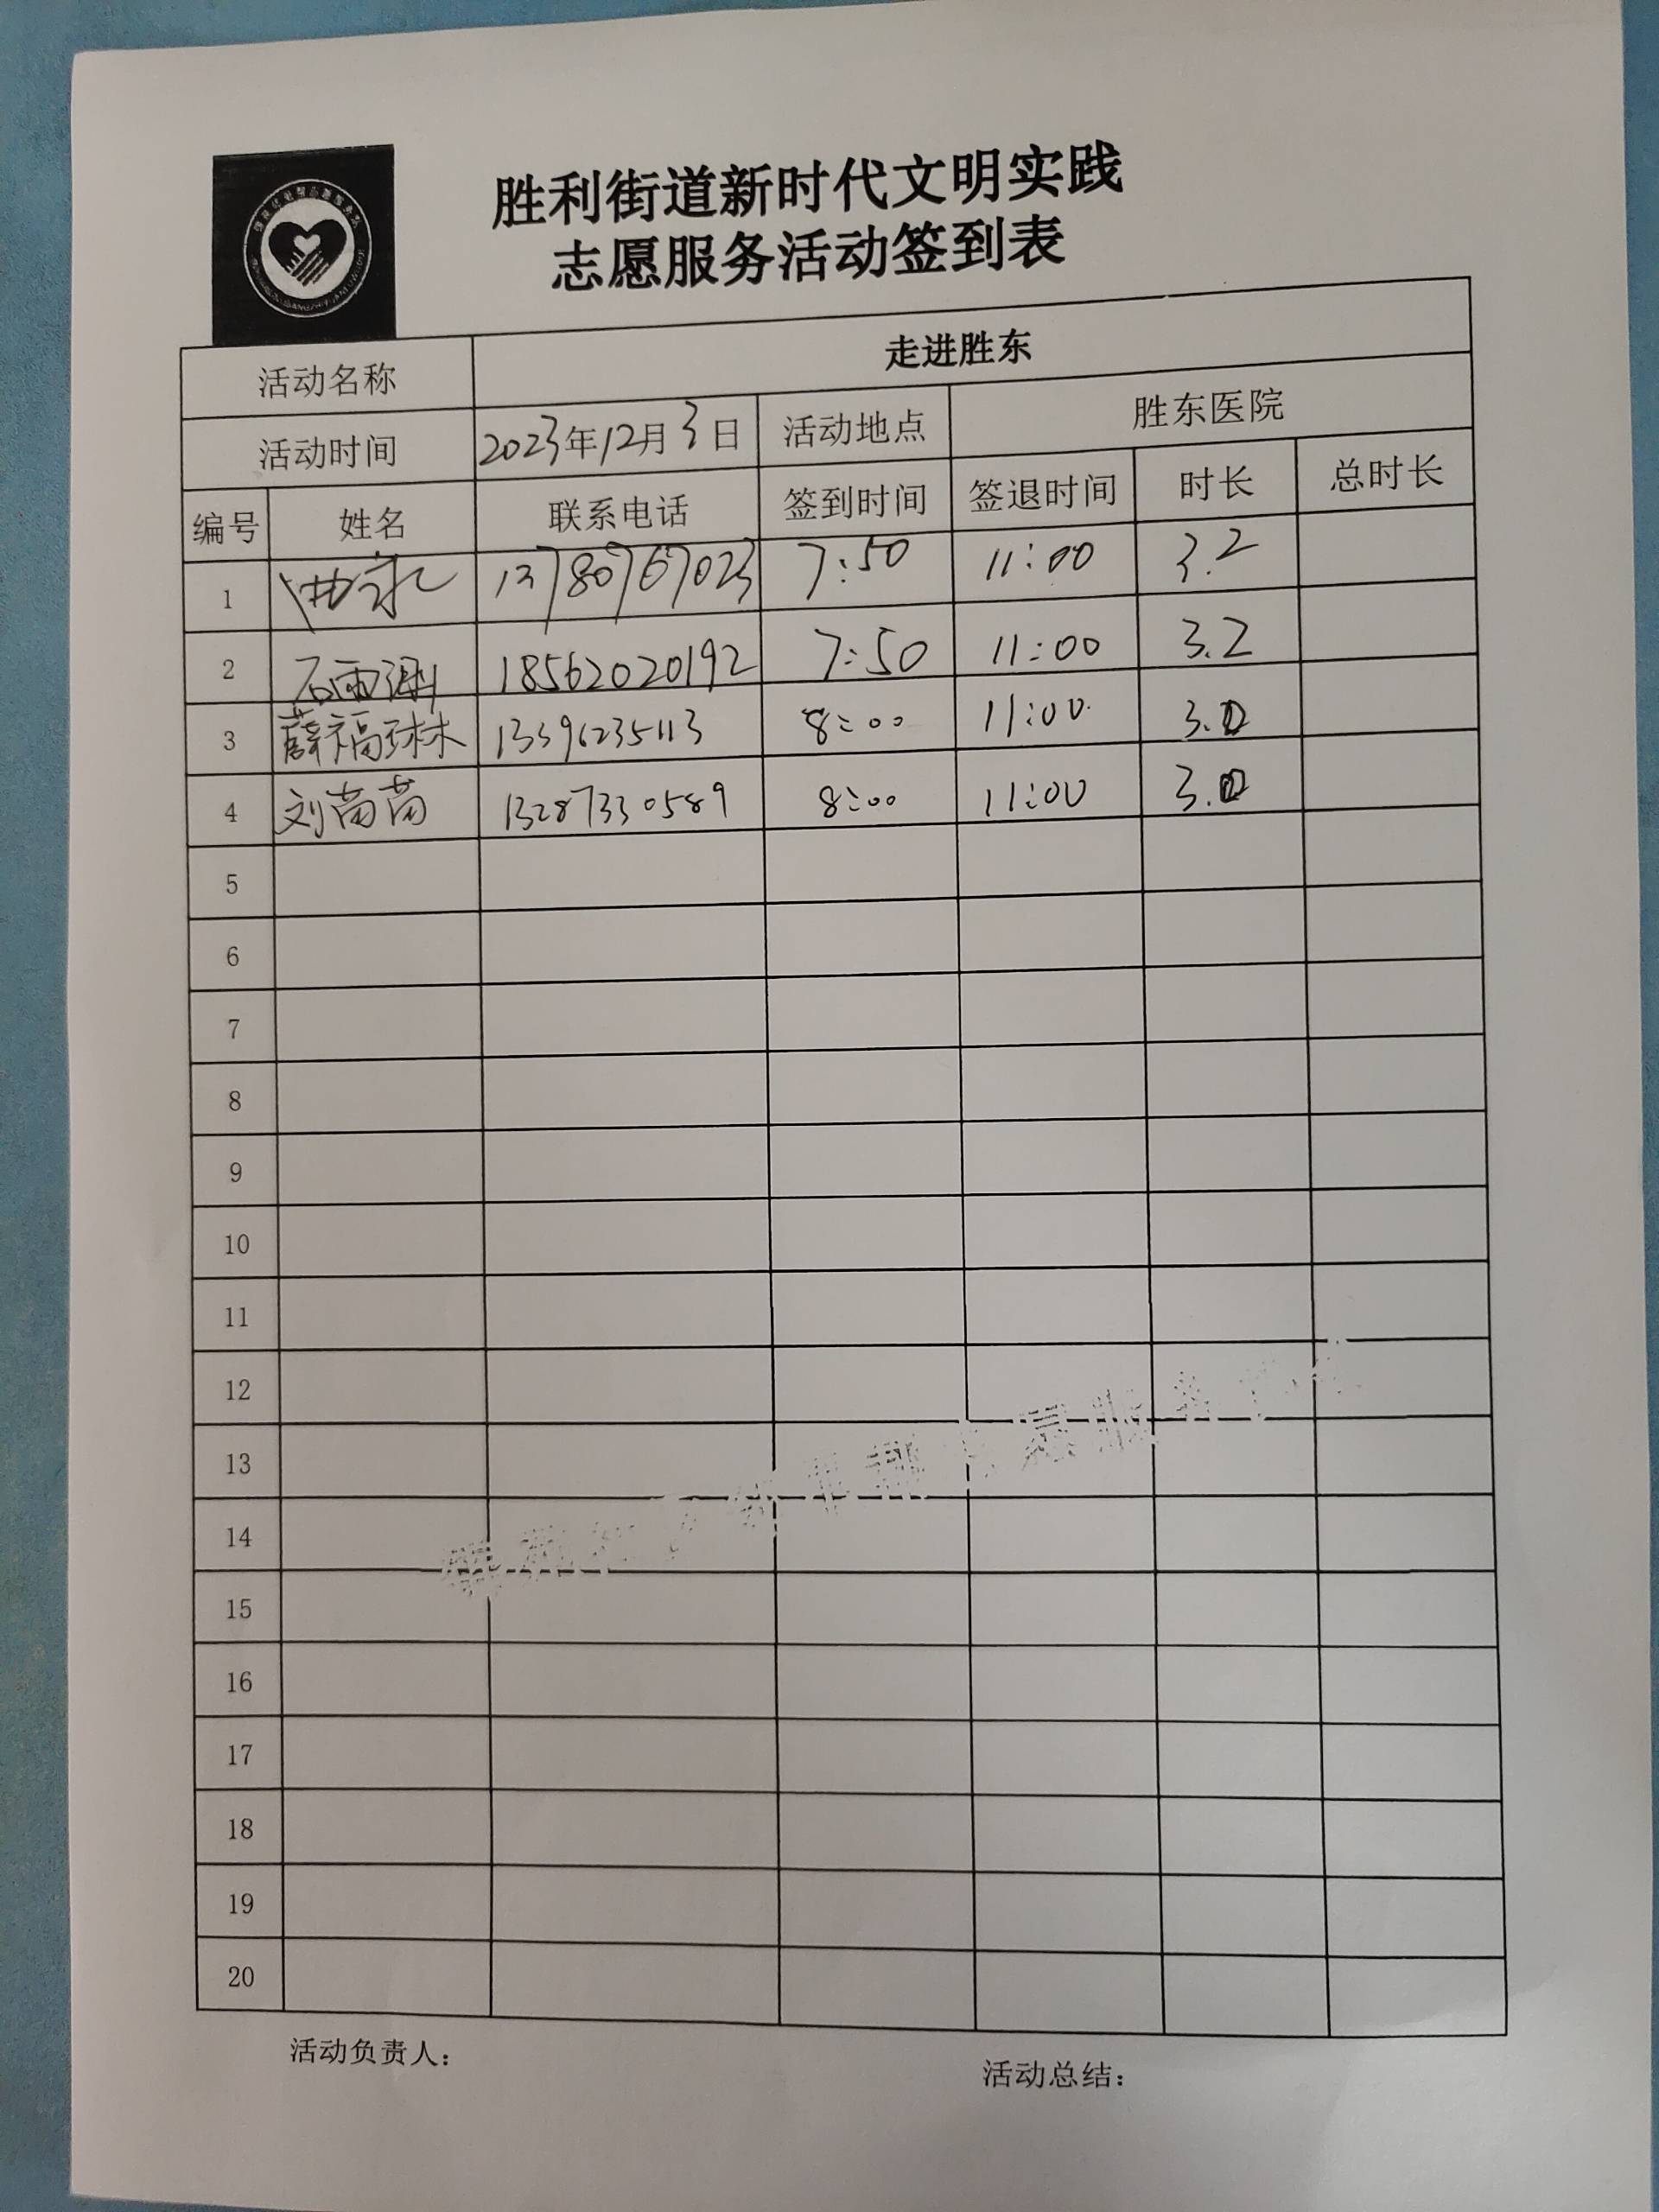 胜利街道新时代文明实践
志愿服务活动签到表
活动名称 走进胜东
活动时间 2023年12月3日 活动地点 胜东医院
编号 姓名 联系电话 签到时间 签退时间 时长 总时长
1 13780767023 7:50 11:00 3.2
2 石雨 18562020192 7:50 11:00 3.2
3 薛福琳 13396235113 8:00 11:00 3.0
4 刘苗苗 13287330589 8:00 11:00 3.0
5
6
7
8
9
10
11
12
13
14
15
16
17
18
19
20
活动负责人：
活动总结：